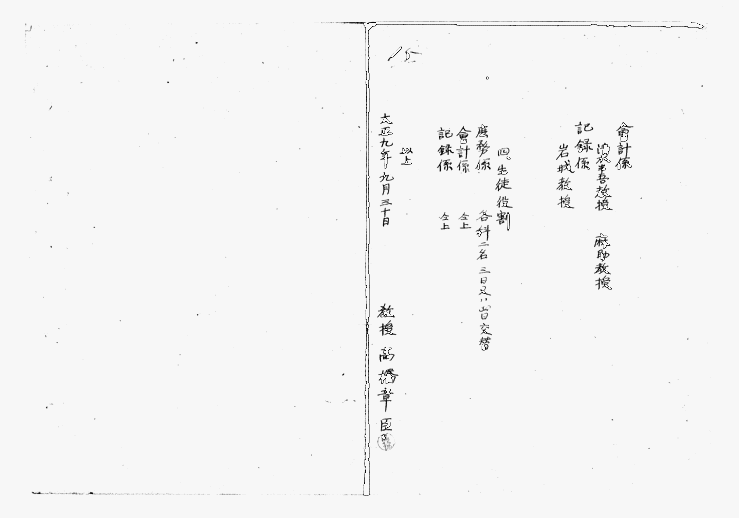 15
會計係
教授 助教授
記録係
岩城教授
四、生徒役割
庶務係 各科二名 三日又ハ四日交替
會計係 仝上
記録係 仝上
以上
大正九年九月三十日
教授 高橋章臣